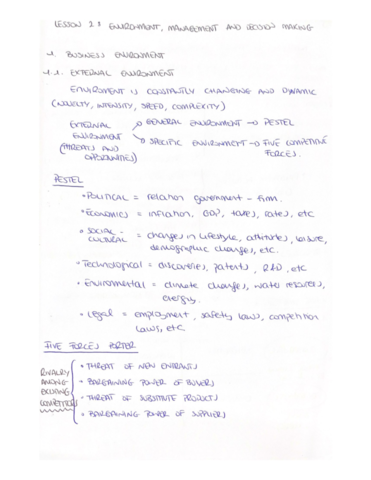 LESSON 2: ENVIRONMENT, MANAGEMENT AND DECISION MAKING
1. BUSINESS ENVIRONMENT
1.1. EXTERNAL ENVIRONMENT
ENVIROMENT IS CONSTANTLY CHANGING AND DYNAMIC
(NOVELTY, INTENSITY, SPEED, COMPLEXITY)
EXTERNAL → GENERAL ENVIRONMENT → PESTEL
ENVIRONMENT → SPECIFIC ENVIRONMENT → FIVE COMPETITIVE
(THREATS AND FORCES.
OPPORTUNITIES)
PESTEL
• POLITICAL = relation government - firm.
• ECONOMICS = inflation, GDP, taxes, rates, etc
• SOCIAL - = changes in lifestyle, attitutes, leisure,
CULTURAL demographic changes, etc.
• Technological = discoveries, patents, R&D, etc
• Environmental = climate changes, water resources,
energy.
• Legal = employment, safety laws, competition
laws, etc
FIVE FORCES PORTER
RIVALRY • THREAT OF NEW ENTRANTS
AMONG • BARGAINING POWER OF BUYERS
EXISTING • THREAT OF SUBSTITUTE PRODUCTS
COMPETITORS • BARGAINING POWER OF SUPPLIERS